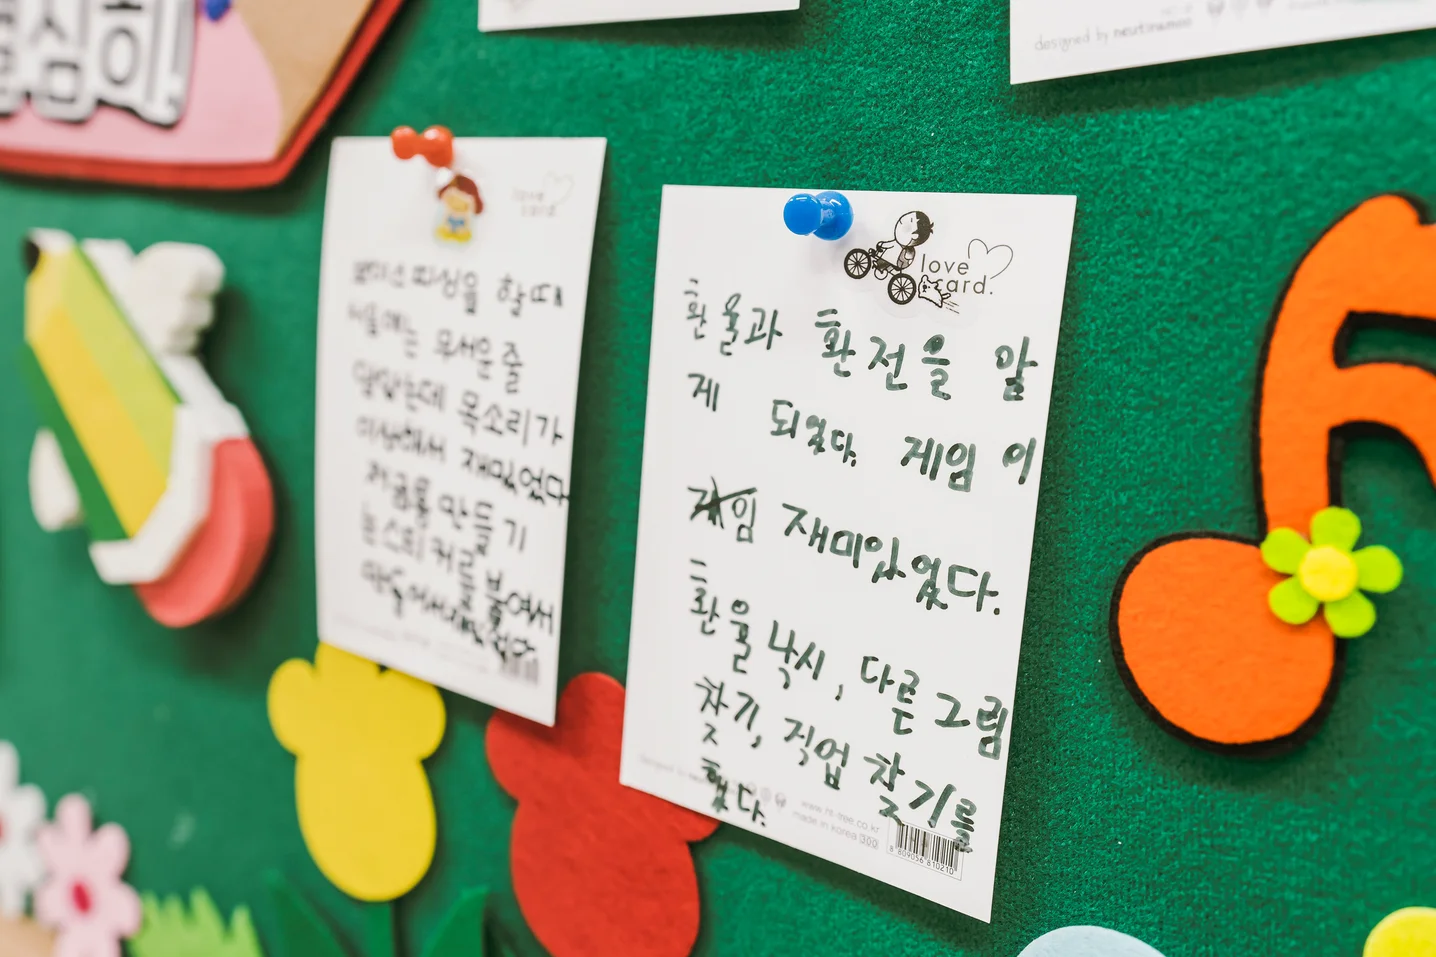 열심히!
designed by neutinamoo
love
card.
보이스피싱을 할때
처음에는 무서운 줄
알았는데 목소리가
이상해서 재밌었다
저금통 만들기
는 스티커를 붙여서
만들어서 재밌었다
love
card.
환율과 환전을 알
게 되었다. 게임 이
게임 재미있었다.
환율 낚시, 다른 그림
찾기, 직업 찾기를
했다.
www.n-tree.co.kr
made in korea 300
8 809056 810210